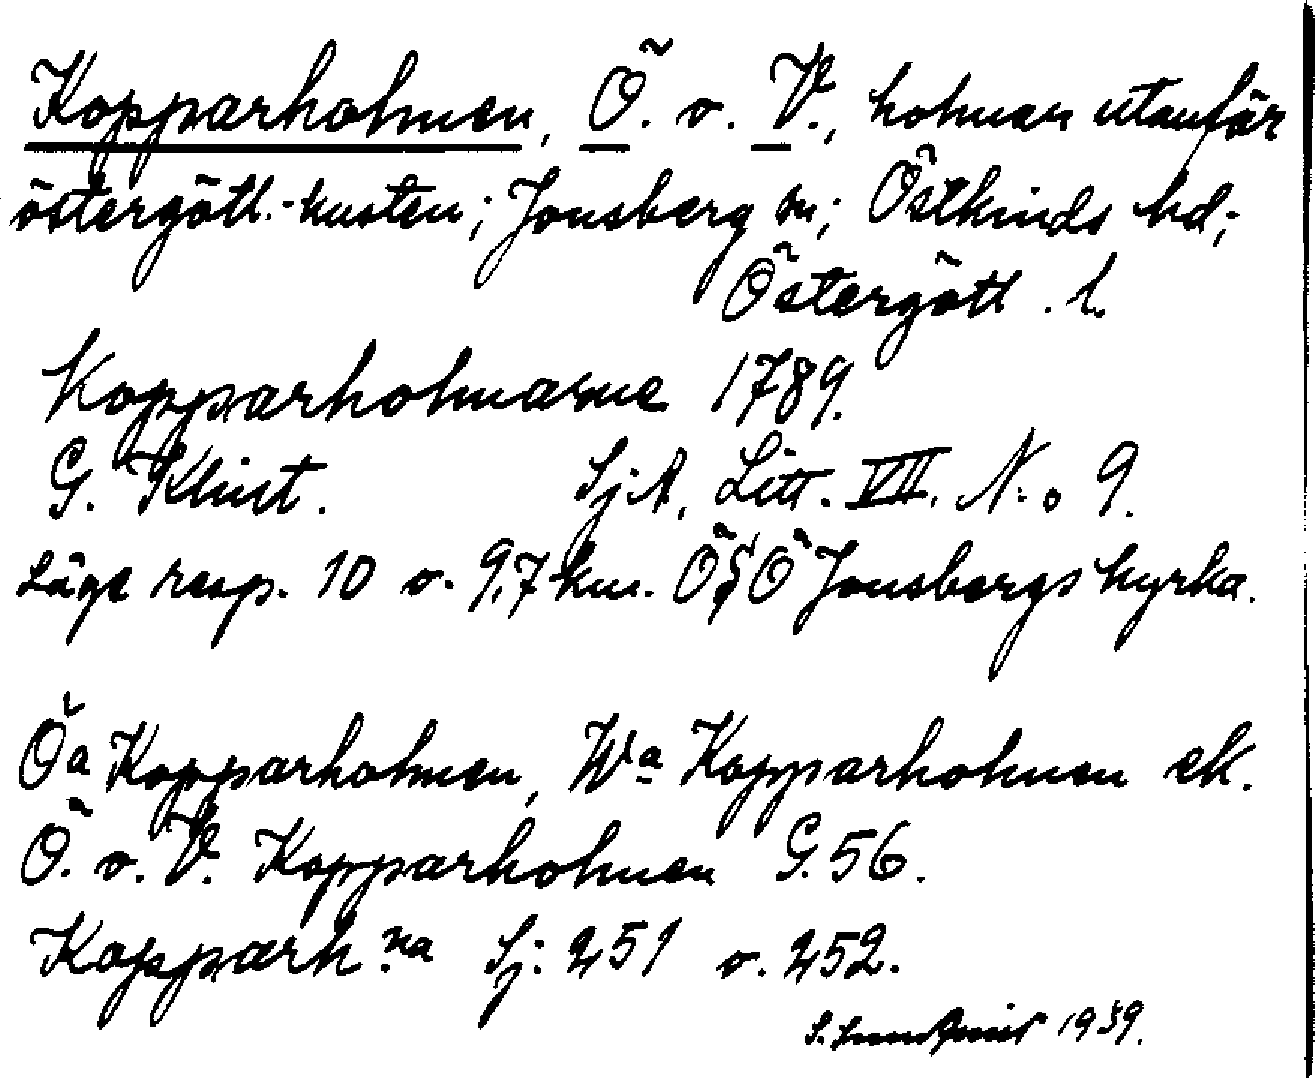 Kopparholmen, Ö. o. V., holmar utanför
östergötl.-kusten; Jonsberg sn; Östkinds hd;
Östergötl. l.
Kopparholmarne 1789.
G. Klint. SjA, Litt. VII. N:o 9.
Läge resp. 10 o. 9,7 km. ÖSÖ Jonsbergs kyrka.
Öa Kopparholmen, Wa Kopparholmen ek.
Ö. o. V. Kopparholmen G. 56.
Kopparh:na Sj: 251 o. 252.
S. 1939.